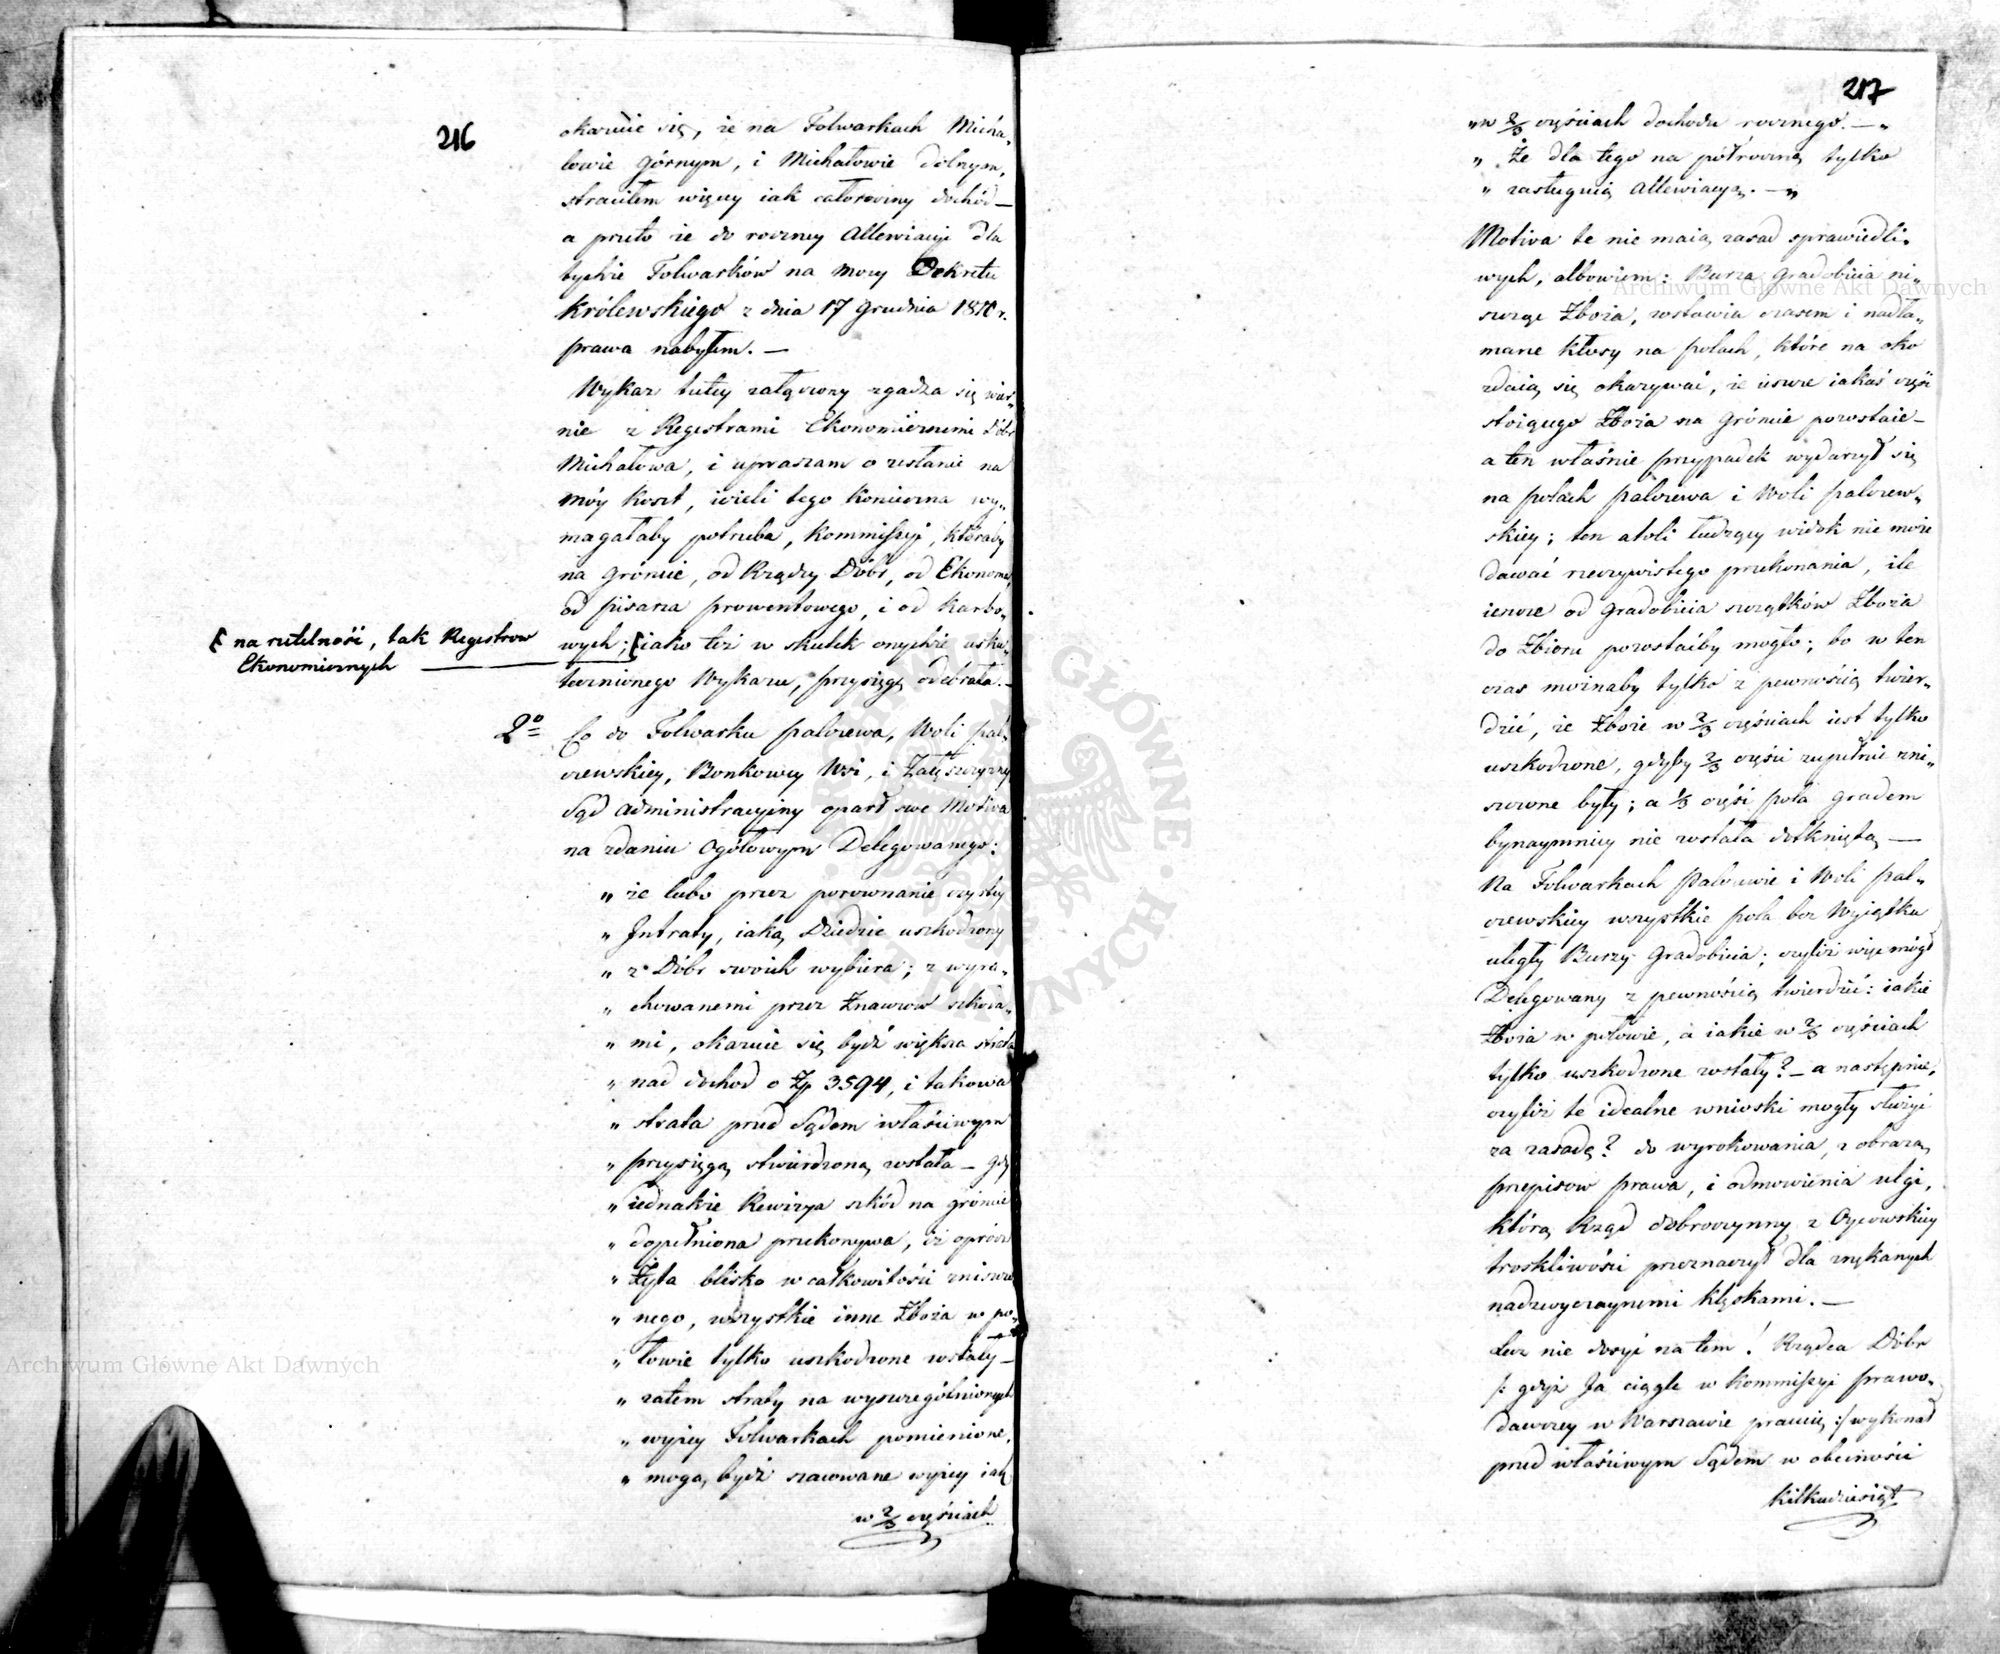 216
okazuie się, że na Folwarkach Micha„
łowie Górnym, i Michałowie dolnym,
straciłem więcey iak całoroczny dochód —
a przeto że do roczney Allewiacyi dla
tychże Folwarków na mocy Dekretu
Królewskiego z dnia 17 Grudnia 1810 r.
prawa nabyłem. —
Wykaz tutey załączony zgadza się wier„
nie z Regestrami Ekonomicznemi Dóbr
Michałowa, i upraszam o zesłanie na
móy koszt, ieżeli tego konieczna wy„
magałaby potrzeba, Kommissyi, któraby
na Gróncie, od Rządzy Dóbr, od Ekonoma,
od pisarza prowentowego, i od Karbo„
wych; [iako też w skutek onychże usku„
tecznionego Wykazu, przysięgę odebrała. —
[ na rzetelność, tak Regestrow
Ekonomicznych
2º Co do Folwarku Palczewa, Woli Pal„
czewskiey, Bonkowey Wsi, i Załęszczyzny
Sąd Administracyiny oparł swe Motiva
na zdaniu Ogółowym Delegowanego:
„ że lubo przez porownanie czystey
„ Jntraty, iaką Dziedzic uszkodzony
„ z Dóbr swoich wybiera; z wyra„
„ chowanemi przez Znawcow szkoda„
„ mi, okazuie się bydź większa strata
„ nad dochod o Zp 3594, i takowa
„ strata przed Sądem właściwym
„ przysięgą stwierdzoną została — gdy
„ iednakże Rewizya szkód na gróncie
„ dopełniona przekonywa, iż oprócz
„ Żyta blisko w całkowitości zniszczo
„ nego, wszystkie inne Zboża w po„
„ łowie tylko uszkodzone zostały —
„ zatem straty na wyszczególnionych
„ wyżey Folwarkach pomienione,
„ mogą bydź szacowane wyżey iak
w 2/3 częściach
217
„ w 2/3 częściach dochodu rocznego. — „
„ Że dla tego na półroczną tylko
„ zasługuią Allewiacyą. — „
Motiva te nie maią zasad sprawiedli„
wych, albowiem: Burza Gradobicia ni„
szcząc Zboża, zostawia czasem i nadła„
mane kłosy na polach, które na oko
zdaią się okazywać, że ieszcze iakaś część
stoiącego Zboża na Gróncie pozostaie —
a ten właśnie przypadek wydarzył się
na polach Palczewa i Woli Palczew„
skiey; ten atoli łudzący widok nie może
dawać rzeczywistego przekonania, ile
ieszcze od Gradobicia szczątków Zboża
do Zbioru pozostaćby mogło; bo w ten
czas możnaby tylko z pewnością twier„
dzić, że Zboże w 2/3 częściach iest tylko
uszkodzone, gdyby 2/3 części zupełnie zni„
szczone były; a 1/3 część pola gradem
bynaymniey nie została dotkniętą —
Na Folwarkach Palczewie i Woli Pal„
czewskiey wszystkie pola bez Wyiątku
uległy Burzy Gradobicia; czyliż więc mógł
Delegowany z pewnością twierdzić: iakie
Zboża w połowie, a iakie w 2/3 częściach
tylko uszkodzone zostały? — a następnie,
czyliż te idealne wnioski mogły służyć
za zasadę? do wyrokowania, z obrazą
przepisow prawa, i odmowienia ulgi,
którą Rząd dobroczynny z Oycowskiey
troskliwości przeznaczył dla znękanych
nadzwyczaynemi klęskami. —
Lecz nie dosyć na tem! Rządca Dóbr
/: gdyż Ja ciągle w Kommissyi prawo„
dawczey w Warszawie pracuię :/ wykonał
przed właściwym Sądem w obecności
kilkudziesiąt
Archiwum Główne Akt Dawnych
Archiwum Główne Akt Dawnych
ARCHIWUM GŁÓWNE AKT DAWNYCH